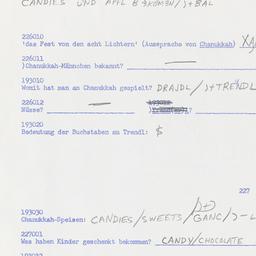 CANDIES UND APFL
226010
'das Fest von den acht Lichtern' (Aussprache von Chanukkah)
226011
)Chanukkah-Männchen bekannt? —
193010
Womit hat man an Chanukkah gespielt? DRAJDL / )+TRENDL
226012
Nüsse? —
193020
Bedeutung der Buchstaben am Trendl: $
227
193030
Chanukkah-Speisen: CANDIES/SWEETS/
227001
Was haben Kinder geschenkt bekommen? CANDY/CHOCOLATE